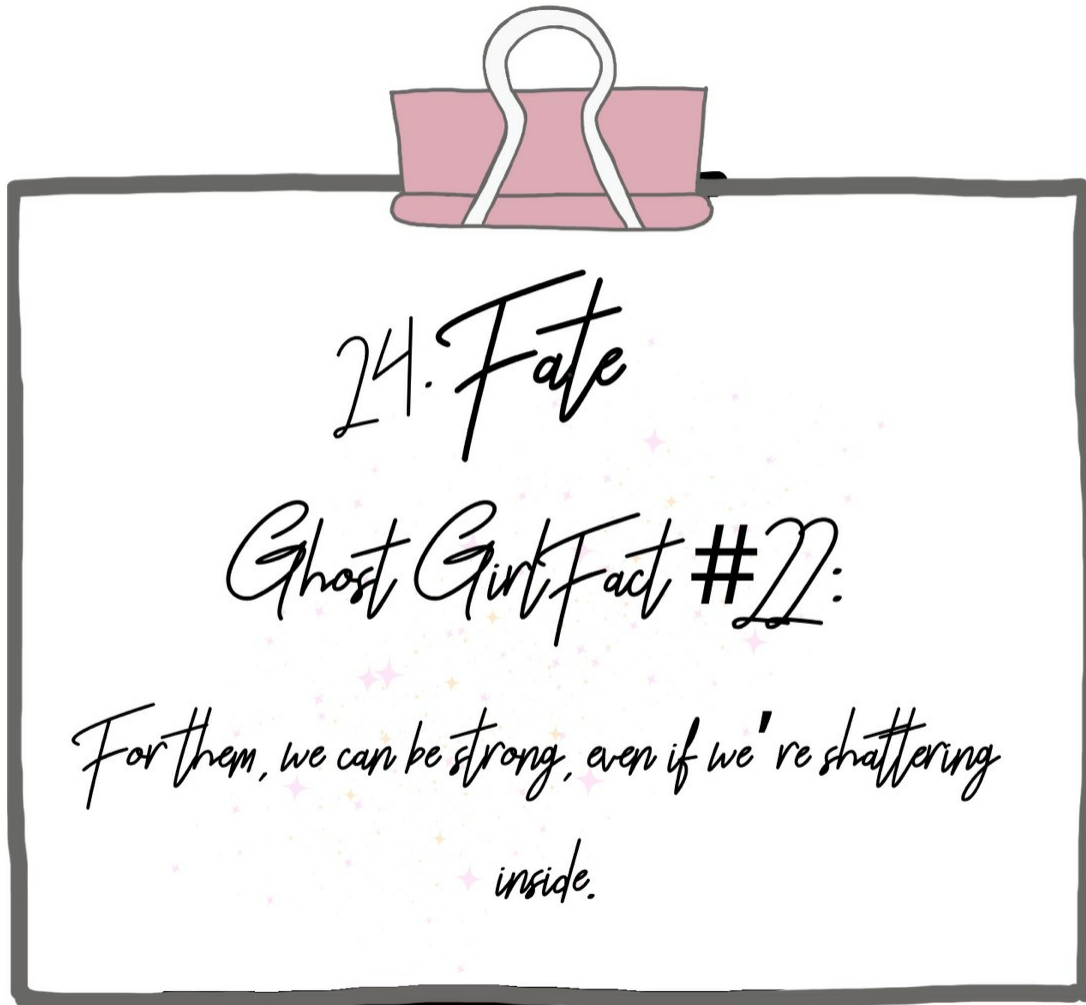 24. Fate
Ghost Girl Fact #22:
For them, we can be strong, even if we're shattering
inside.